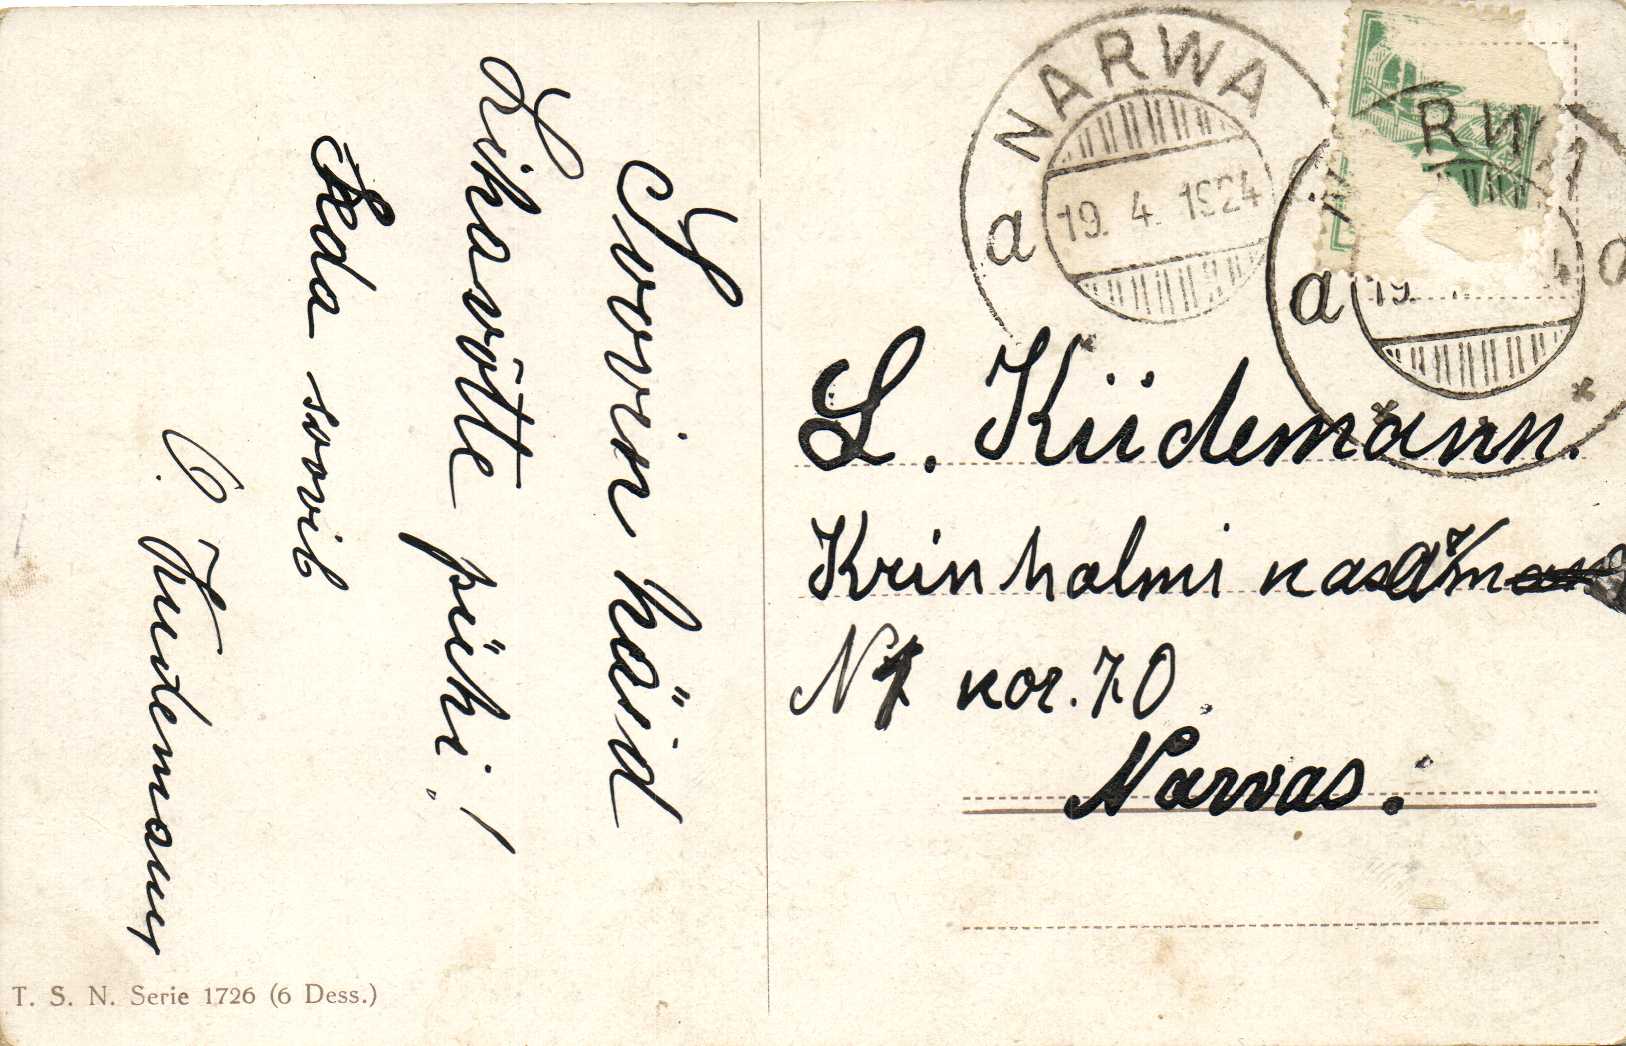 Soovin häid
Lihavõtte pühi!
Seda soovib
O. Kuudemann
T. S. N. Serie 1726 (6 Dess.)
NARWA
a 19. 4. 1924
RW
a 19. 4 a
L. Küdemann.
Krinholmi kasarm
N 1 kor. 70
Narvas.